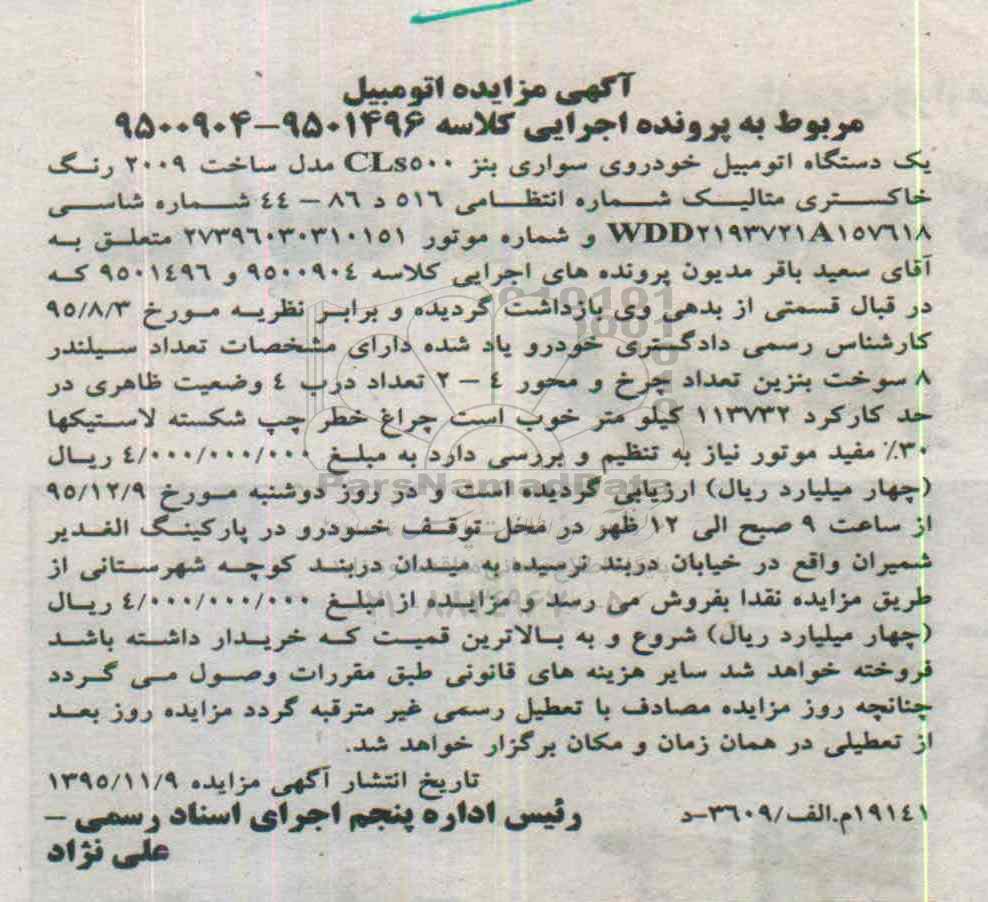 آگهی مزایده اتومبیل
مربوط به پرونده اجرایی کلاسه ۹۵۰۱۴۹۶-۹۵۰۰۹۰۴
یک دستگاه اتومبیل خودروی سواری بنز CLs۵۰۰ مدل ساخت ۲۰۰۹ رنگ
خاکستری متالیک شماره انتظامی ۵۱۶ د ۸۶ – ۴۴ شماره شاسی
WDD۲۱۹۳۷۲۱A۱۵۷۶۱۸ و شماره موتور ۲۷۳۹۶۰۳۰۳۱۰۱۵۱ متعلق به
آقای سعید باقر مدیون پرونده های اجرایی کلاسه ۹۵۰۰۹۰۴ و ۹۵۰۱۴۹۶ که
در قبال قسمتی از بدهی وی بازداشت گردیده و برابر نظریه مورخ ۹۵/۸/۳
کارشناس رسمی دادگستری خودرو یاد شده دارای مشخصات تعداد سیلندر
۸ سوخت بنزین تعداد چرخ و محور ۴ – ۲ تعداد درب ۴ وضعیت ظاهری در
حد کارکرد ۱۱۳۷۳۲ کیلو متر خوب است چراغ خطر چپ شکسته لاستیکها
۳۰٪ مفید موتور نیاز به تنظیم و بررسی دارد به مبلغ ۴/۰۰۰/۰۰۰/۰۰۰ ریال
(چهار میلیارد ریال) ارزیابی گردیده است و در روز دوشنبه مورخ ۹۵/۱۲/۹
از ساعت ۹ صبح الی ۱۲ ظهر در محل توقف خودرو در پارکینگ الغدیر
شمیران واقع در خیابان دربند نرسیده به میدان دربند کوچه شهرستانی از
طریق مزایده نقدا بفروش می رسد و مزایده از مبلغ ۴/۰۰۰/۰۰۰/۰۰۰ ریال
(چهار میلیارد ریال) شروع و به بالاترین قمیت که خریدار داشته باشد
فروخته خواهد شد سایر هزینه های قانونی طبق مقررات وصول می گردد
چنانچه روز مزایده مصادف با تعطیل رسمی غیر مترقبه گردد مزایده روز بعد
از تعطیلی در همان زمان و مکان برگزار خواهد شد.
تاریخ انتشار آگهی مزایده ۱۳۹۵/۱۱/۹
۱۹۱۴۱م.الف/۳۶۰۹-د
رئیس اداره پنجم اجرای اسناد رسمی –
علی نژاد
ParsNamadData